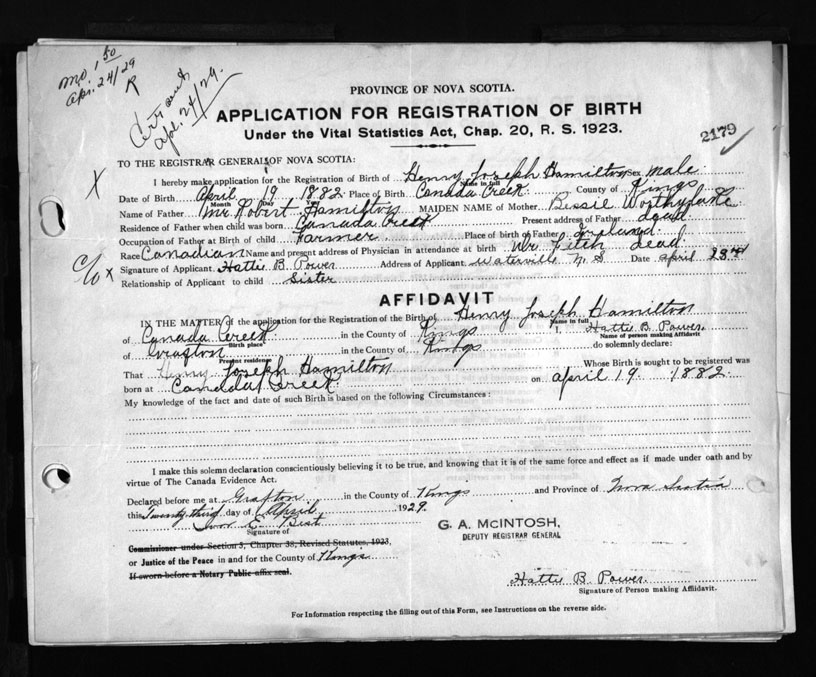 Mo. 1 50
Apr. 24/29
R
Apl. 24/29.
PROVINCE OF NOVA SCOTIA.
APPLICATION FOR REGISTRATION OF BIRTH
Under the Vital Statistics Act, Chap. 20, R. S. 1923.
2179
TO THE REGISTRAR GENERAL OF NOVA SCOTIA:
X
I hereby make application for the Registration of Birth of Henry Joseph Hamilton Sex Male
Name in full
Date of Birth April 19 1882 Place of Birth Canada Creek County of Kings
Month Day
Name of Father Mr Robert Hamilton MAIDEN NAME of Mother Bessie
Residence of Father when child was born Canada Creek Present address of Father dead
Occupation of Father at Birth of child Farmer. Place of birth of Father Ireland.
Race Canadian Name and present address of Physician in attendance at birth Dr. Fitch dead
c/o x Signature of Applicant Hattie B Power Address of Applicant Waterville N. S Date April 23rd
Relationship of Applicant to child Sister
AFFIDAVIT
IN THE MATTER of the application for the Registration of the Birth of Henry Joseph Hamilton
Name in full
of Canada Creek in the County of Kings I, Hattie B. Power.
Birth place Name of person making Affidavit
of in the County of Kings do solemnly declare:
Present residence
That Henry Joseph Hamilton Whose Birth is sought to be registered was
born at Canada Creek. on April 19 1882.
My knowledge of the fact and date of such Birth is based on the following Circumstances:
I make this solemn declaration conscientiously believing it to be true, and knowing that it is of the same force and effect as if made under oath and by
virtue of The Canada Evidence Act.
Declared before me at Grafton in the County of Kings and Province of Nova Scotia
this Twenty third day of April 1929.
E. Best
Signature of
G. A. McINTOSH,
DEPUTY REGISTRAR GENERAL
Commissioner under Section 3, Chapter 38, Revised Statutes, 1923,
or Justice of the Peace in and for the County of Kings
If sworn before a Notary Public affix seal.
Hattie B. Power.
Signature of Person making Affidavit.
For Information respecting the filling out of this Form, see Instructions on the reverse side.